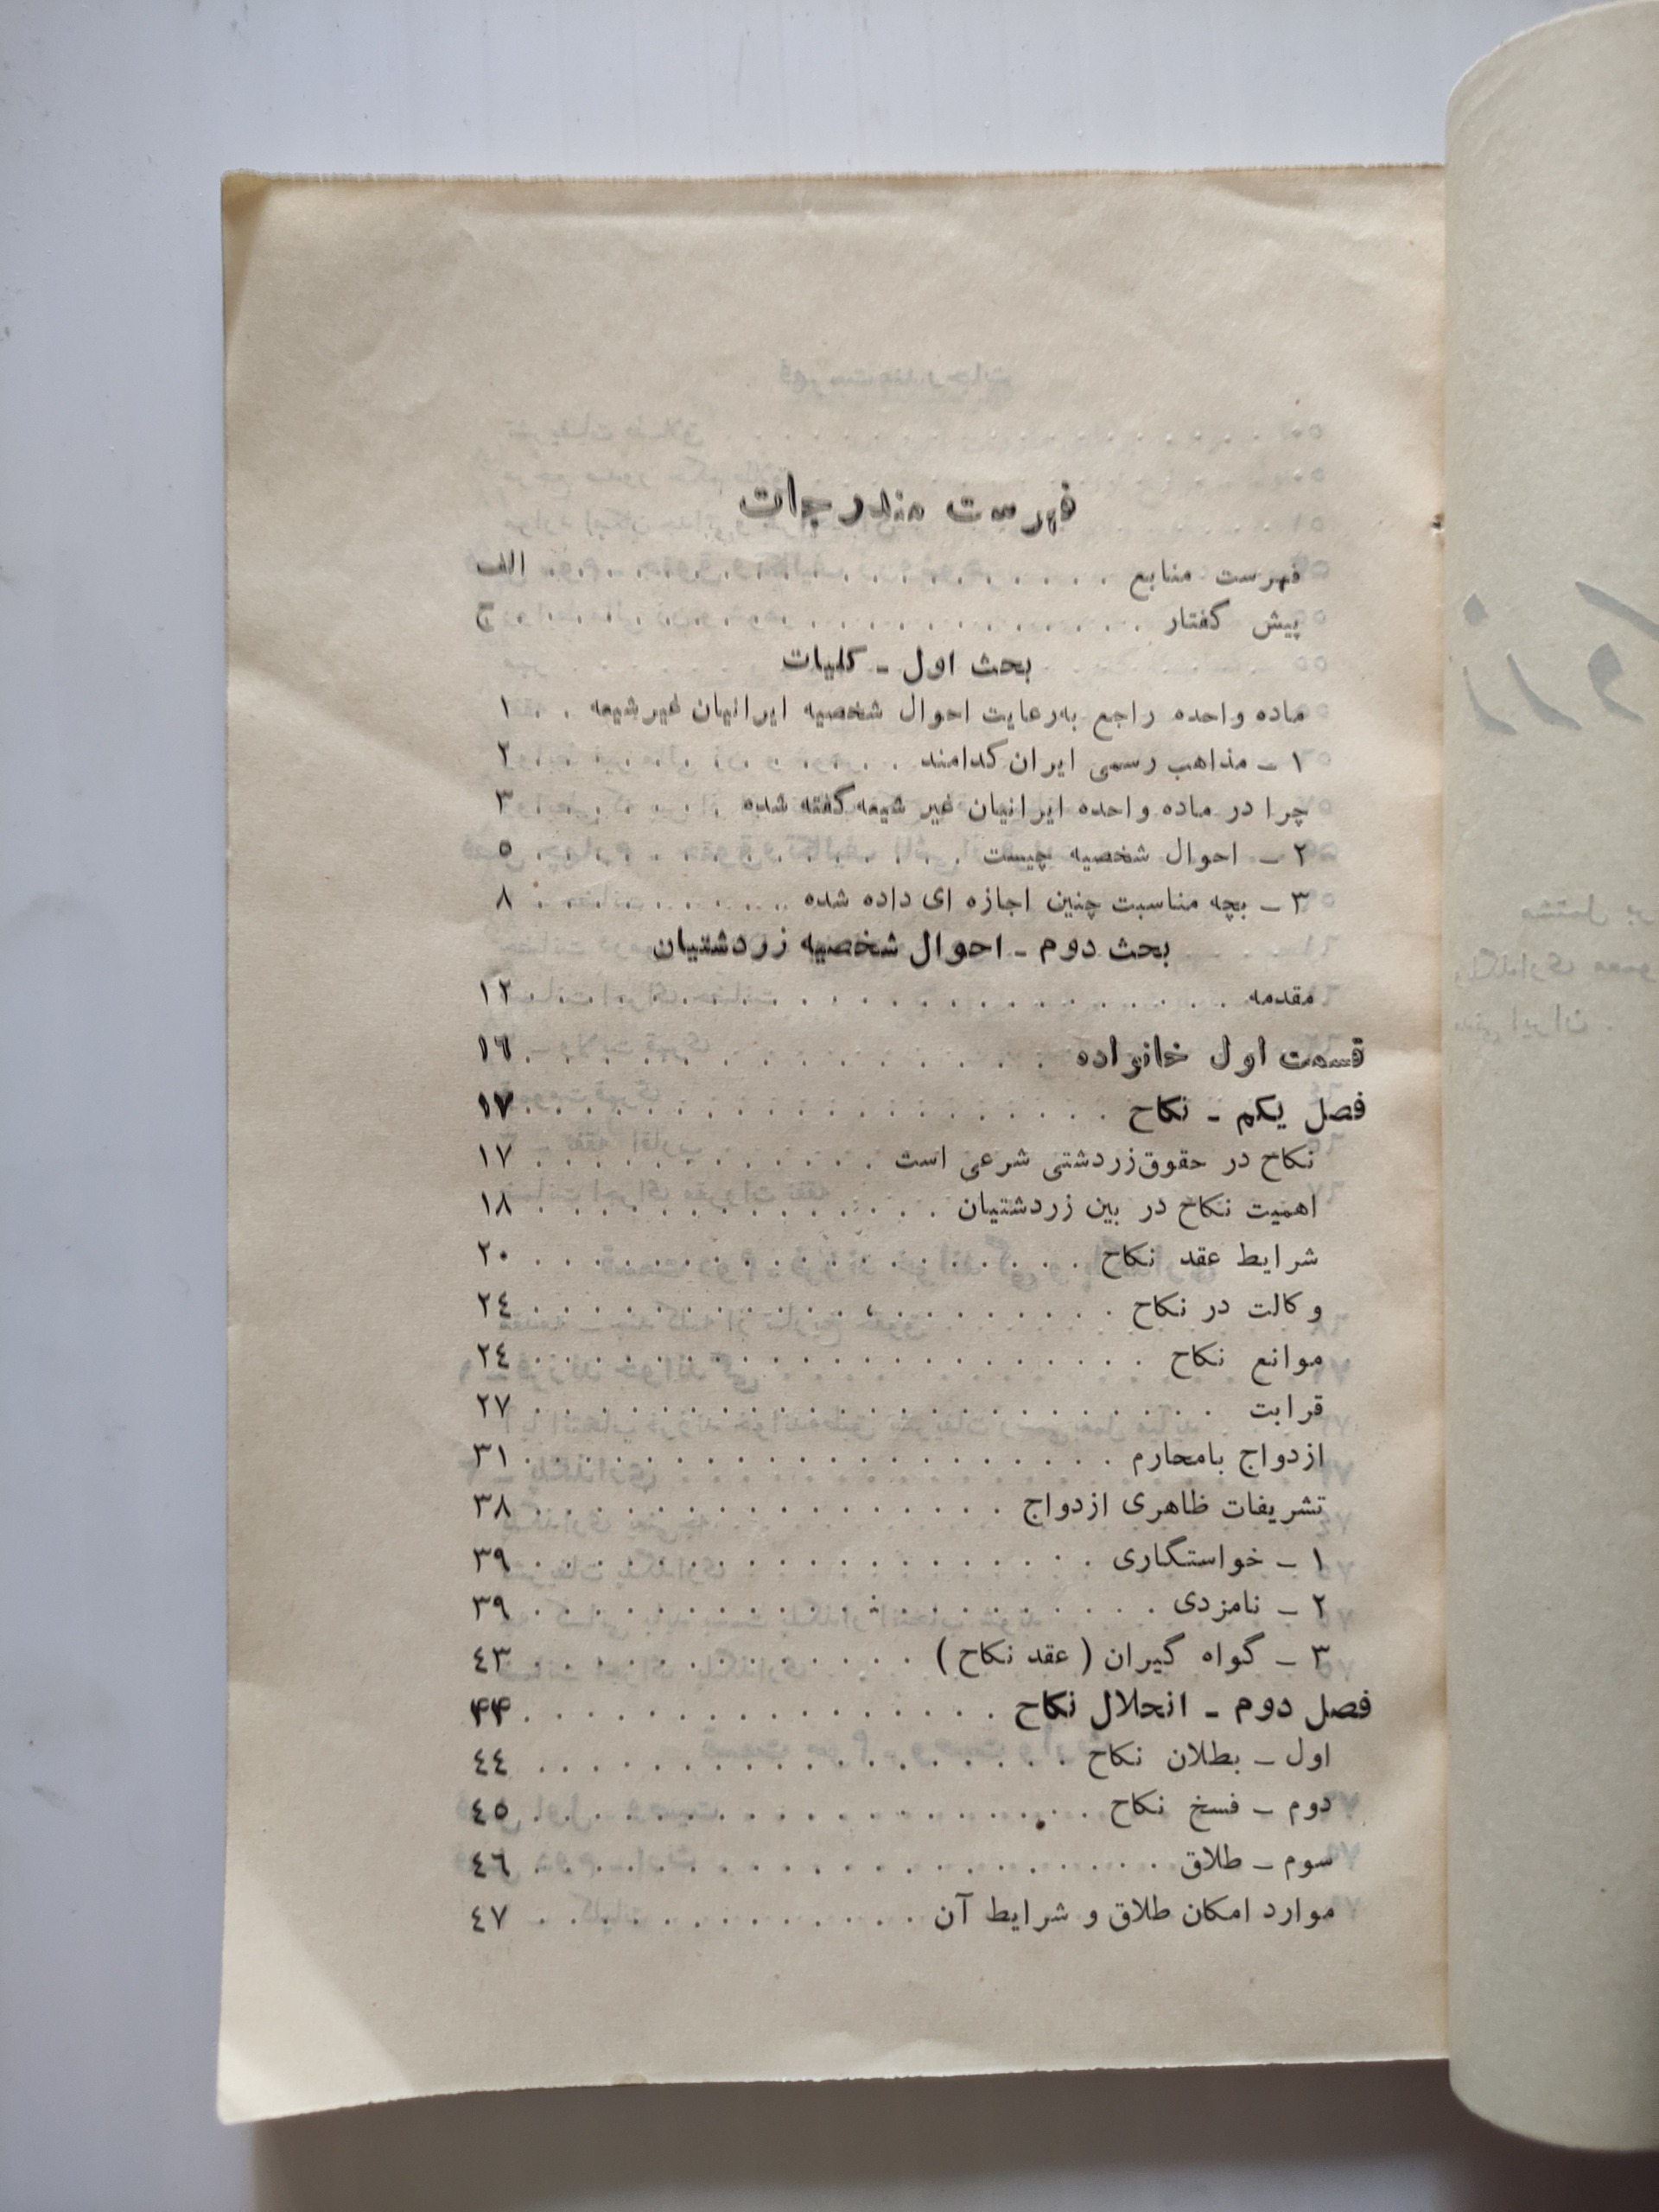 فهرست مندرجات
فهرست منابع . . . . . . . . . . . . . . . . . . . . الف
پیش گفتار . . . . . . . . . . . . . . . . . . . . ج
بحث اول ـ کلیات
ماده واحده راجع به‌رعایت احوال شخصیه ایرانیان غیرشیعه . . ۱
۱ ـ مذاهب رسمی ایران کدامند . . . . . . . . . . . . ۲
چرا در ماده واحده ایرانیان غیر شیعه گفته شده . . . . . . ۳
۲ ـ احوال شخصیه چیست . . . . . . . . . . . . . . ٥
۳ ـ بچه مناسبت چنین اجازه ای داده شده . . . . . . . . ۸
بحث دوم ـ احوال شخصیه زردشتیان
مقدمه . . . . . . . . . . . . . . . . . . . . ۱۲
قسمت اول خانواده . . . . . . . . . . . . . . . . ۱٦
فصل یکم ـ نکاح . . . . . . . . . . . . . . . . . ۱۷
نکاح در حقوق‌زردشتی شرعی است . . . . . . . . . . . . ۱۷
اهمیت نکاح در بین زردشتیان . . . . . . . . . . . . . ۱۸
شرایط عقد نکاح . . . . . . . . . . . . . . . . . ۲۰
وکالت در نکاح . . . . . . . . . . . . . . . . . . ۲٤
موانع نکاح . . . . . . . . . . . . . . . . . . . ۲٤
قرابت . . . . . . . . . . . . . . . . . . . . . ۲۷
ازدواج بامحارم . . . . . . . . . . . . . . . . . . ۳۱
تشریفات ظاهری ازدواج . . . . . . . . . . . . . . . ۳۸
۱ ـ خواستگاری . . . . . . . . . . . . . . . . . . ۳۹
۲ ـ نامزدی . . . . . . . . . . . . . . . . . . . ۳۹
۳ ـ گواه گیران ( عقد نکاح ) . . . . . . . . . . . . ٤۳
فصل دوم ـ انحلال نکاح . . . . . . . . . . . . . . . ۴۴
اول ـ بطلان نکاح . . . . . . . . . . . . . . . . . ٤٤
دوم ـ فسخ نکاح . . . . . . . . . . . . . . . . . . ٤٥
سوم ـ طلاق . . . . . . . . . . . . . . . . . . . ٤٦
موارد امکان طلاق و شرایط آن . . . . . . . . . . . . ٤۷